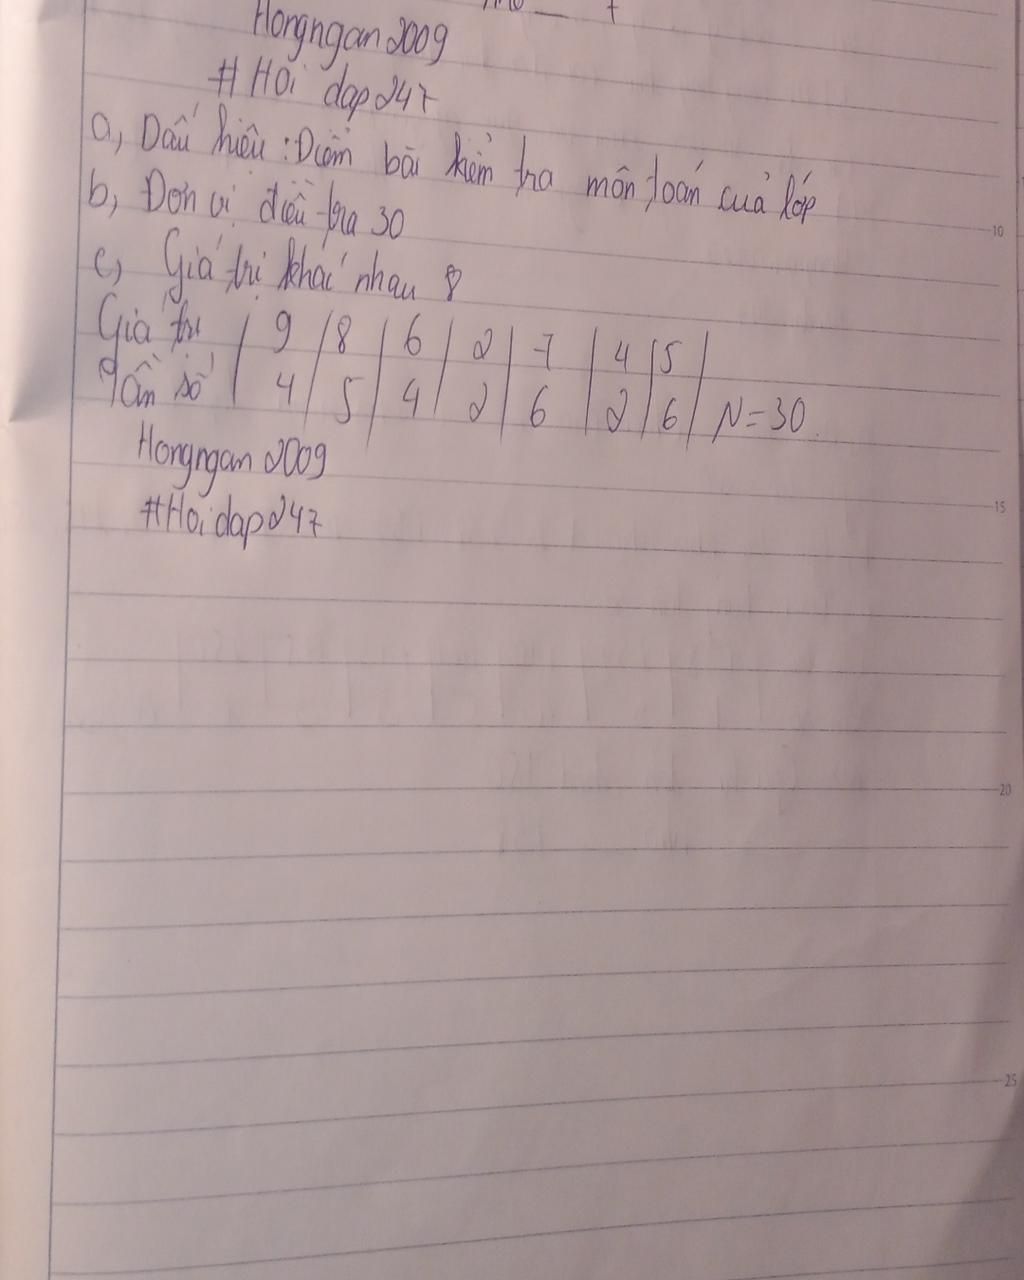 Hongngan2009
# Hoi dap247
a, Dấu hiêu : Điểm bài kiểm tra môn toán của lớp
b, Đơn vị điều tra 30
c, Giá trị khác nhau 8
Giá trị | 9 | 8 | 6 | 2 | 7 | 4 | 5 |
Tần số | 4 | 5 | 4 | 2 | 6 | 2 | 6 | N=30.
Hongngan2009
#Hoidap247
10
15
20
25